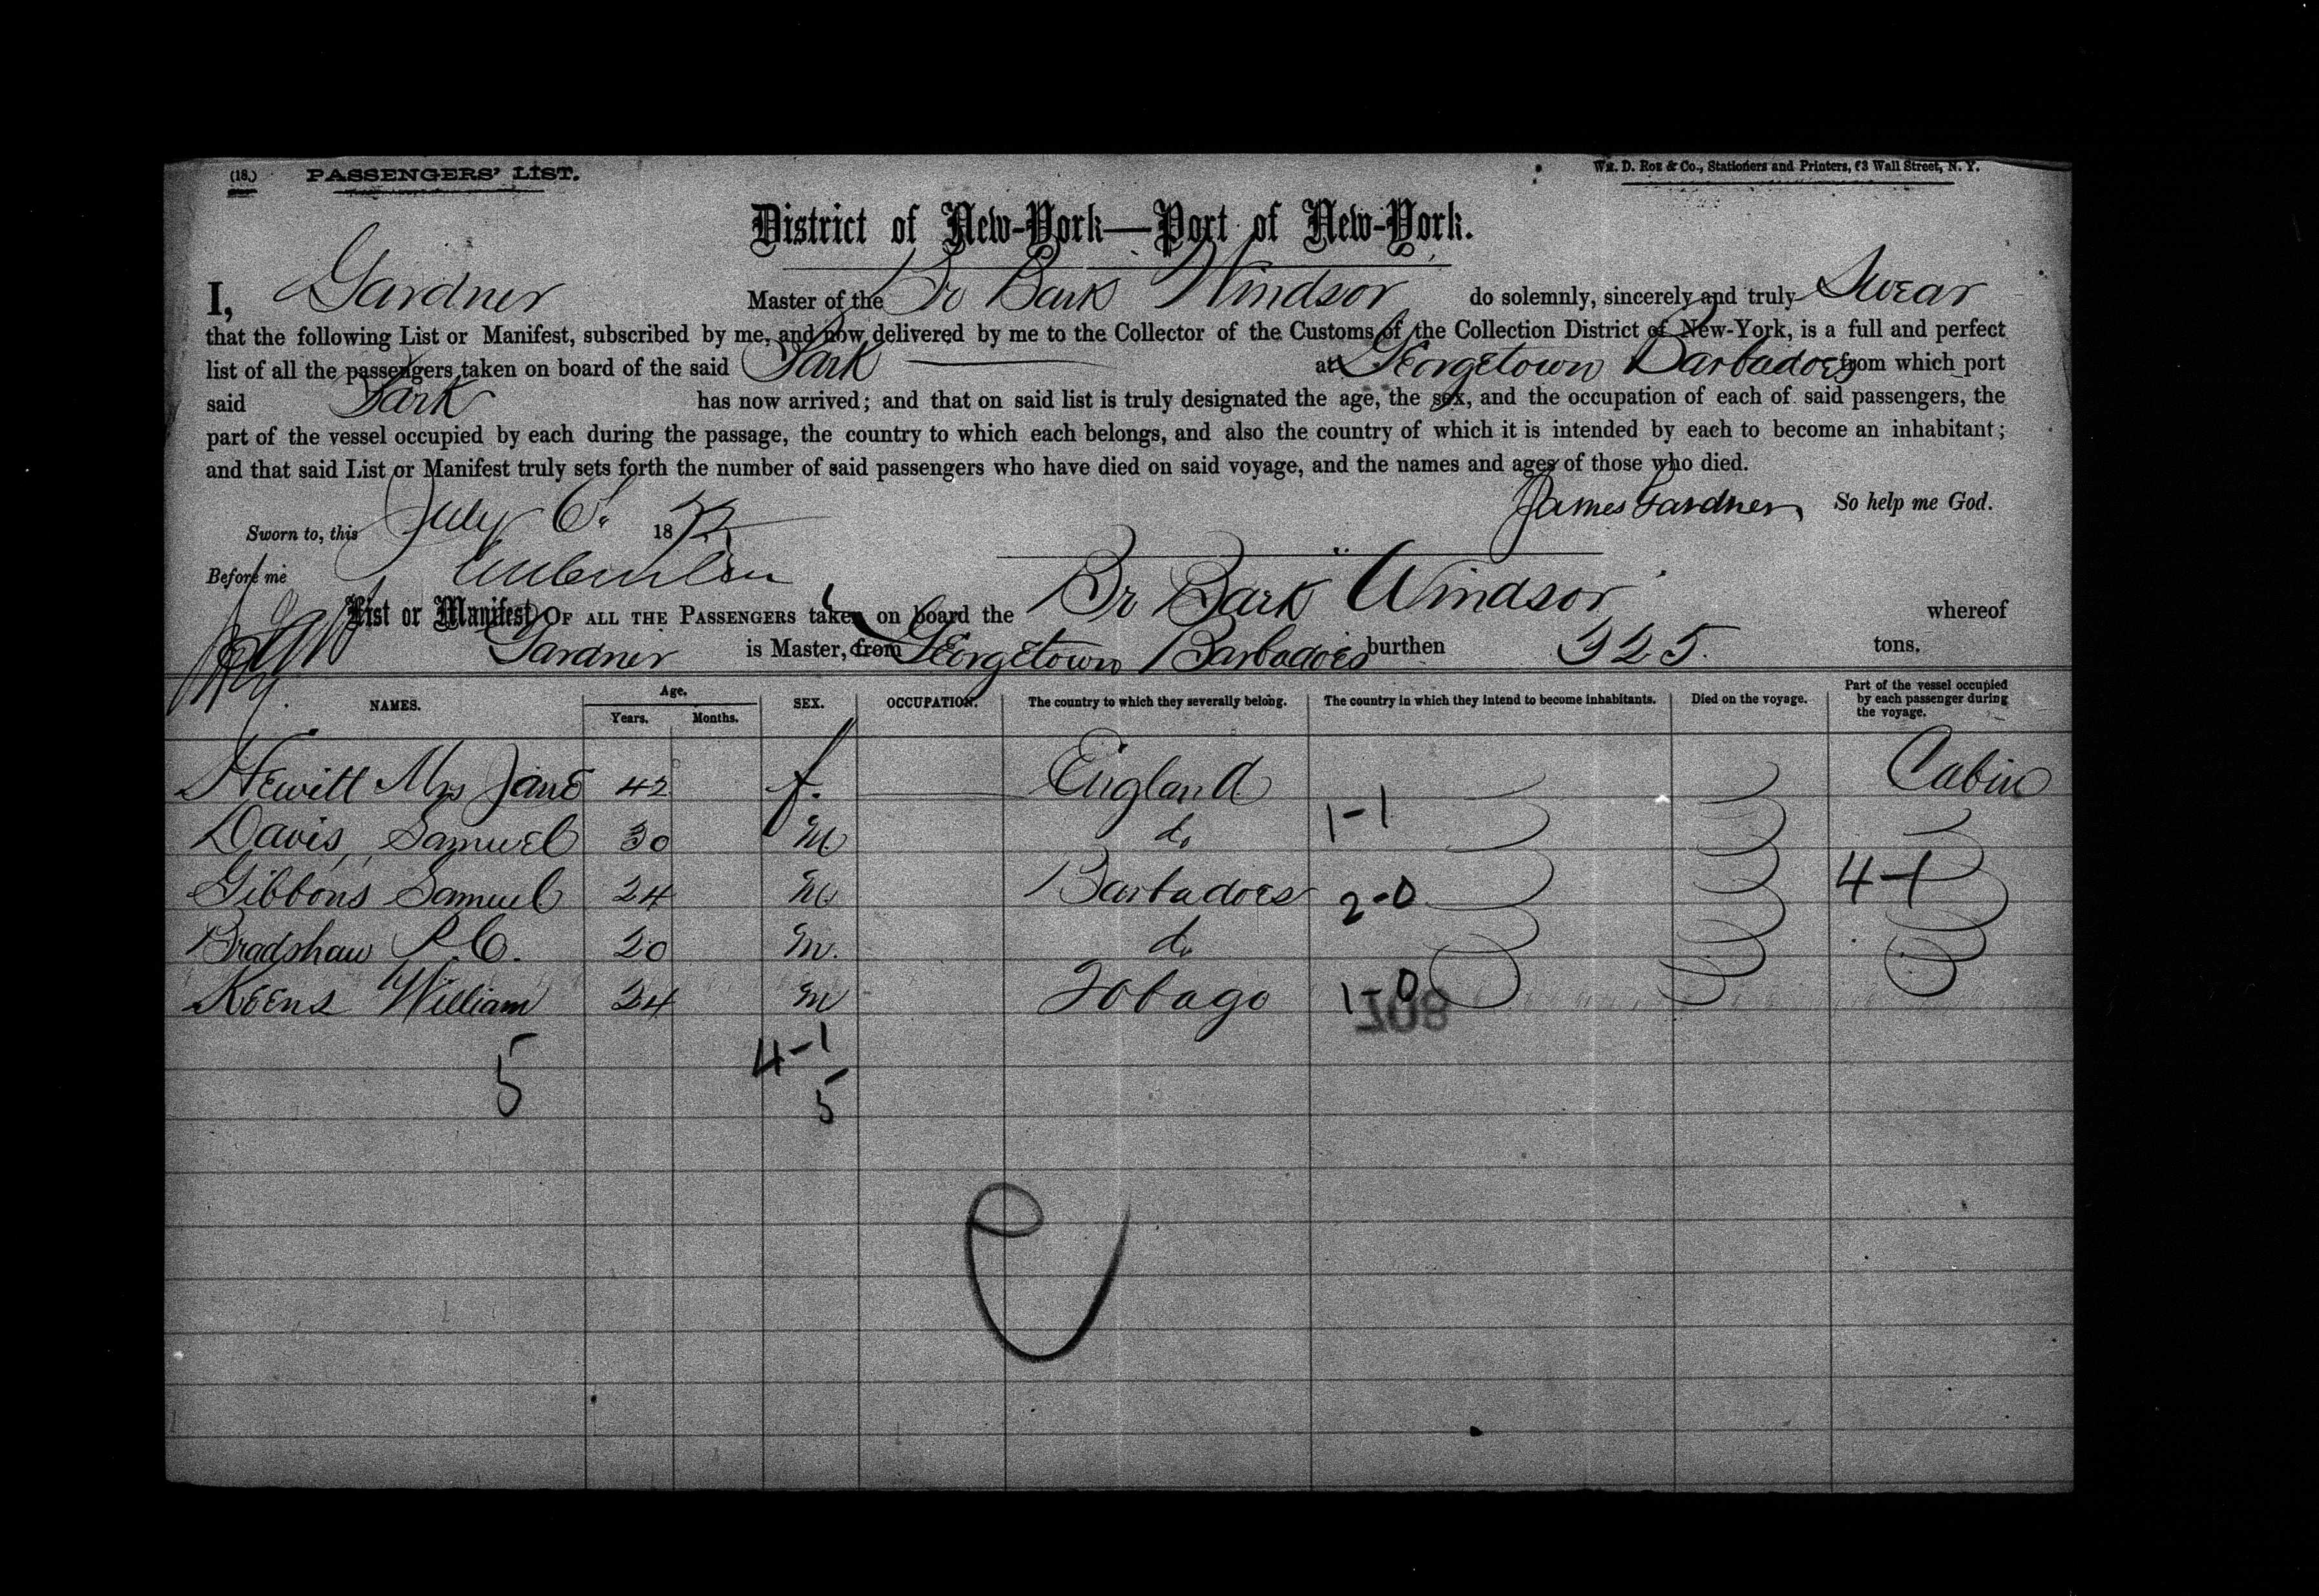 (18.) PASSENGERS' LIST.
Wm. D. Roe & Co., Stationers and Printers, 63 Wall Street, N. Y.
District of New-York—Port of New-York.
I, Gardner Master of the Br Bark Windsor do solemnly, sincerely and truly Swear
that the following List or Manifest, subscribed by me, and now delivered by me to the Collector of the Customs of the Collection District of New-York, is a full and perfect
list of all the passengers taken on board of the said Bark at Georgetown Barbadoes from which port
said Bark has now arrived; and that on said list is truly designated the age, the sex, and the occupation of each of said passengers, the
part of the vessel occupied by each during the passage, the country to which each belongs, and also the country of which it is intended by each to become an inhabitant;
and that said List or Manifest truly sets forth the number of said passengers who have died on said voyage, and the names and ages of those who died.
James Gardner So help me God.
Sworn to, this July 6. 18
Before me
List or Manifest OF ALL THE PASSENGERS taken on board the Br Bark Windsor whereof
Gardner is Master, from Georgetown Barbadoes burthen 325. tons.
NAMES. Age. Years. Months. SEX. OCCUPATION. The country to which they severally belong. The country in which they intend to become inhabitants. Died on the voyage. Part of the vessel occupied by each passenger during the voyage.
Hewitt Mrs Jane 42 f. England Cabin
1-1
Davis, Samuel 30 M do
Gibbons Samuel 24 M Barbadoes 2-0 4-1
Bradshaw P. C. 20 M. do
Keens William 24 M Tobago 1-0
807
5 4-1
5